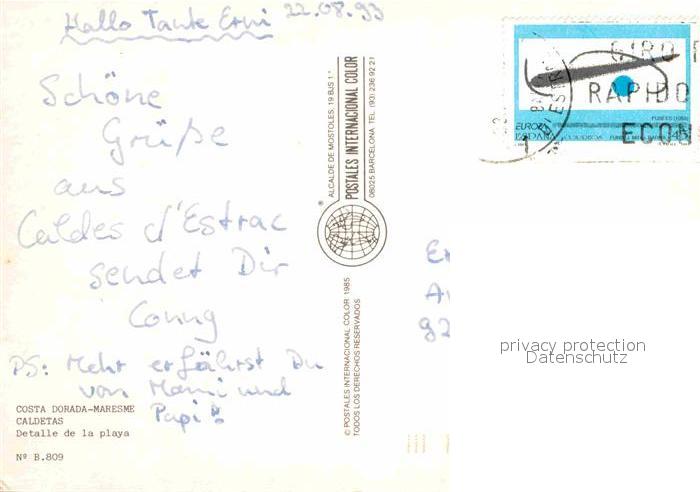 Hallo Tante Erni 22.08.93
Schöne
Grüße
aus
Caldes d'Estrac
sendet Dir
Conny
PS: Mehr erfährst Du
von Mami und
Papi!!
COSTA DORADA-MARESME
CALDETAS
Detalle de la playa
Nº B.809
® ALCALDE DE MOSTOLES, 19 BJS 1.ª
POSTALES INTERNACIONAL COLOR
08025 BARCELONA TEL. (93) 236 92 21
© POSTALES INTERNACIONAL COLOR 1985
TODOS LOS DERECHOS RESERVADOS
GIRO
RAPIDO
ECON
EUROPA
ESPAÑA
45
92
privacy protection
Datenschutz